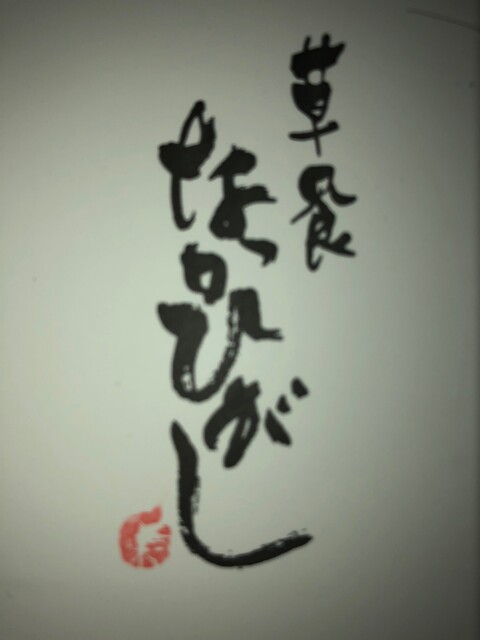 草喰
なかひがし